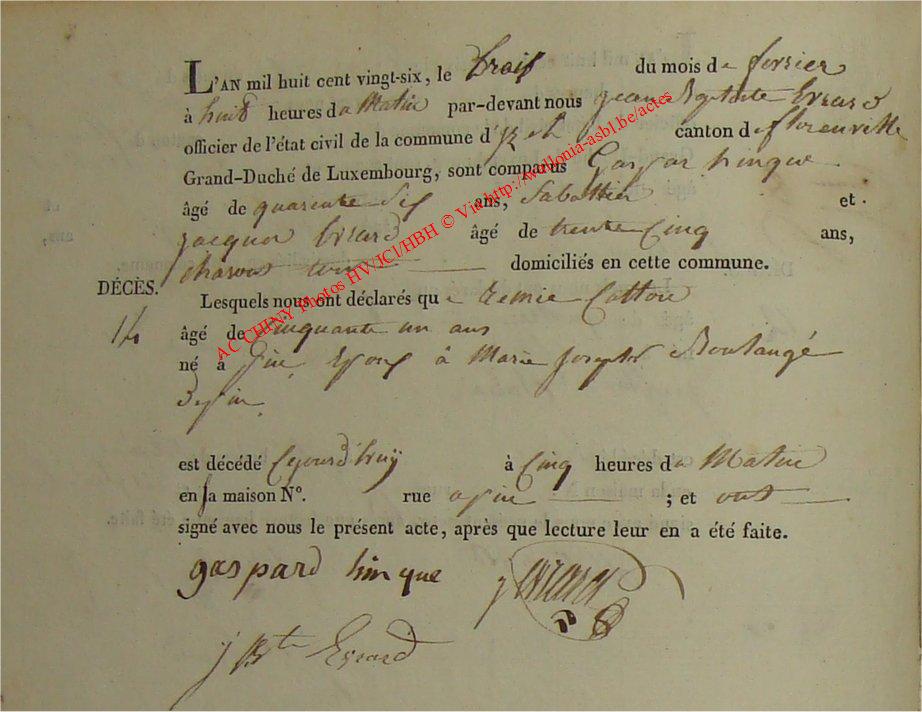 L'AN mil huit cent vingt-six, le trois du mois de fevrier
à huit heures du Matin par-devant nous jean Baptiste Evrard
officier de l'état civil de la commune d' canton de florenville
Grand-Duché de Luxembourg, sont comparus Gaspar hinque
âgé de quarente Six ans, Sabottier et
jacques Evrard âgé de trente Cinq ans,
domiciliés en cette commune.
DÉCÈS.
14
Lesquels nous ont déclarés que Remie Cottou
âgé de Cinquante un ans
né à Epoux à Marie joseph Boulangé
est décédé Cejourd'huy à Cinq heures du Matin
en sa maison N°. rue ; et ont
signé avec nous le présent acte, après que lecture leur en a été faite.
gaspard hinque j evrard
j Bte Evrard
AC CHINY Photos HV/JCI/HBH © Via http://wallonia-asbl.be/actes